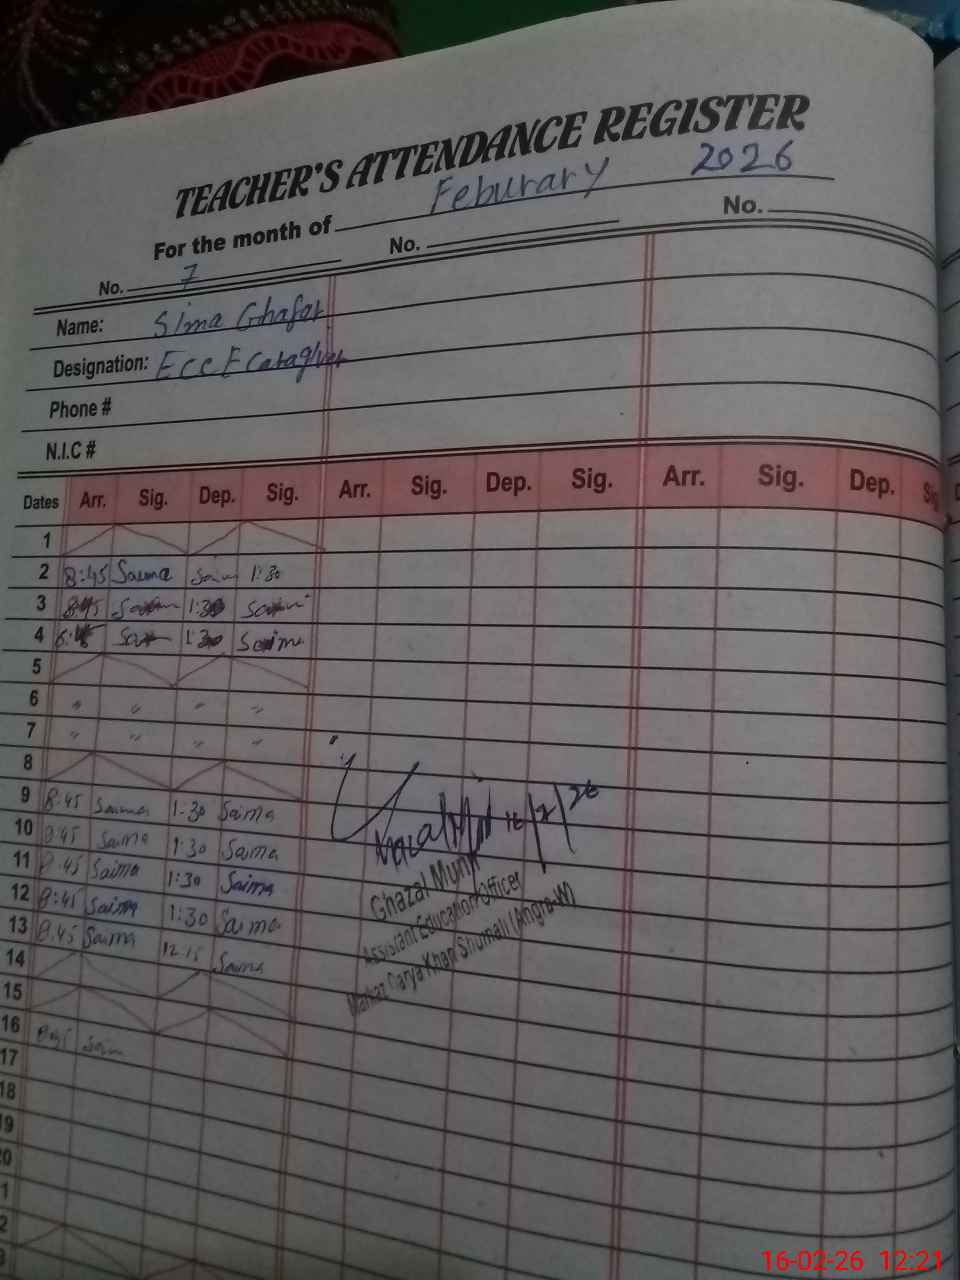 TEACHER'S ATTENDANCE REGISTER
For the month of Feburary 2026
No. 7 No. No.
Name: Sima Ghafor
Designation: ECCE
Phone #
N.I.C #
Dates Arr. Sig. Dep. Sig. Arr. Sig. Dep. Sig. Arr. Sig. Dep.
1
2 8:45 Saima 1:30
3 8:45 1:30
4 1:30 Saima
5
6 " " " "
7 " " " "
8
9 8:45 Saima 1:30 Saima
10 8:45 Saima 1:30 Saima
11 8:45 Saima 1:30 Saima
12 8:45 Saima 1:30 Saima
13 8:45 Saima 12:15 Saima
14
15
16 8:45
17
18
19
20
16/2/26
Ghazal Munir
Assistant Education Officer
16-02-26 12:21